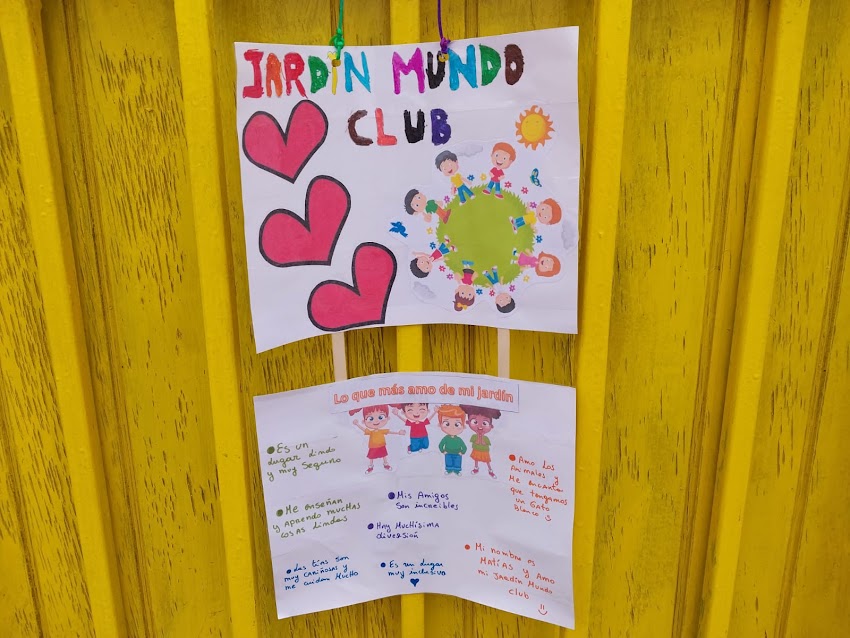 JARDIN MUNDO
CLUB
Lo que más amo de mi jardín
Es un
Lugar Lindo
y muy seguro
Me enseñan
y aprendo muchas
cosas Lindas
Las tías son
muy cariñosas y
me cuidan mucho
Mis Amigos
son increíbles
Hay muchísima
diversión
Es un Lugar
muy inclusivo
Amo los
Animales y
Me encanta
que tengamos
un gato
Blanco
Mi nombre es
MATÍAS y Amo
mi Jardín Mundo
club